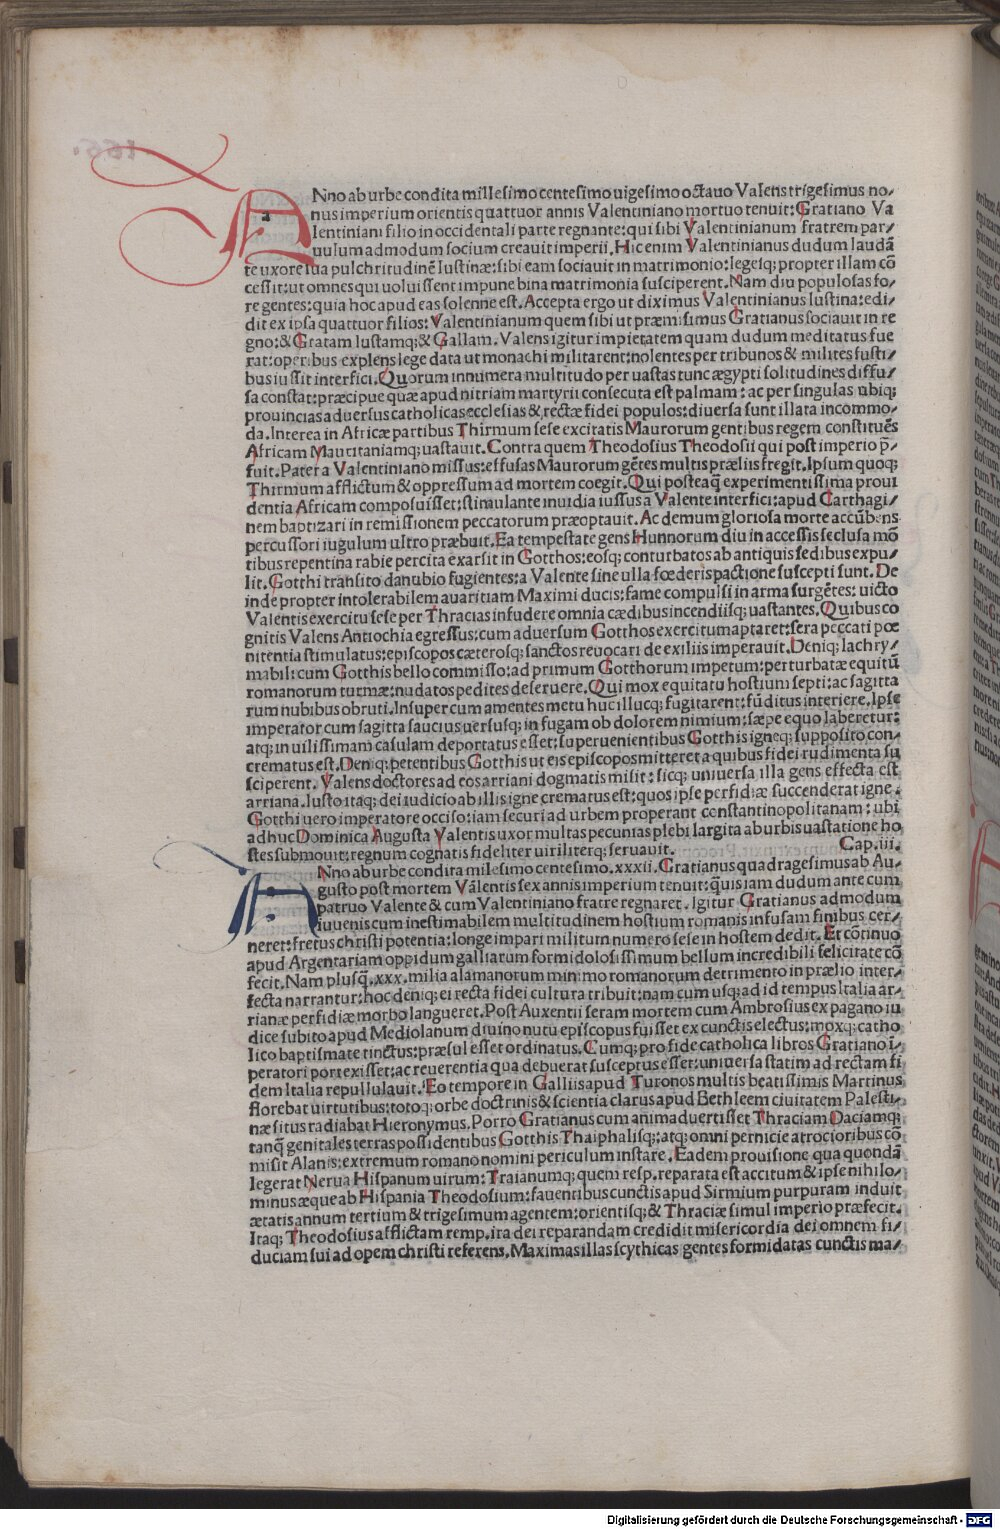 ANno ab urbe condita millesimo centesimo uigesimo octauo Valens trigesimus no/
nus imperium orientis quattuor annis Valentiniano mortuo tenuit: Gratiano Va
lentiniani filio in occidentali parte regnante: qui sibi Valentinianum fratrem par/
uulum admodum socium creauit imperii. Hic enim Valentinianus dudum laudā
te uxore sua pulchritudinē Iustinæ: sibi eam sociauit in matrimonio: legesq; propter illam cō
cessit: ut omnes qui uoluissent impune bina matrimonia susciperent. Nam diu populosas fo/
re gentes: quia hoc apud eas solenne est. Accepta ergo ut diximus Valentinianus Iustina: edi/
dit ex ipsa quattuor filios: Valentinianum quem sibi ut præmisimus Gratianus sociauit in re
gno: & Gratam Iustamq; & Gallam. Valens igitur impietatem quam dudum meditatus fue
rat: operibus explens lege data ut monachi militarent: nolentes per tribunos & milites fusti/
bus iussit interfici. Quorum innumera multitudo per uastas tunc ægypti solitudines diffu/
sa constat: præcipue quæ apud nitriam martyrii consecuta est palmam: ac per singulas ubiq;
prouincias aduersus catholicas ecclesias & rectæ fidei populos: diuersa sunt illata incommo/
da. Interea in Africæ partibus Thirmum sese excitatis Maurorum gentibus regem constituēs
Africam Mauritaniamq; uastauit. Contra quem Theodosius Theodosii qui post imperio p̄/
fuit. Pater a Valentiniano missus: effusas Maurorum gētes multis præliis fregit. Ipsum quoq;
Thirmum afflictum & oppressum ad mortem coegit. Qui posteaq̄ experimentissima proui
dentia Africam composuisset: stimulante inuidia iussus a Valente interfici: apud Carthagi/
nem baptizari in remissionem peccatorum præoptauit. Ac demum gloriosa morte accūbens
percussori iugulum ultro præbuit. Ea tempestate gens Hunnorum diu in accessis seclusa mō
tibus repentina rabie percita exarsit in Gotthos: eosq; conturbatos ab antiquis sedibus expu/
lit. Gotthi transito danubio fugientes: a Valente sine ulla fœderis pactione suscepti sunt. De
inde propter intolerabilem auaritiam Maximi ducis: fame compulsi in arma surgētes: uicto
Valentis exercitu sese per Thracias infudere omnia cædibus incendiisq; uastantes. Quibus co
gnitis Valens Antiochia egressus: cum aduersum Gotthos exercitum aptaret: sera peccati pœ
nitentia stimulatus: episcopos cæterosq; sanctos reuocari de exiliis imperauit. Deniq; lachry/
mabili cum Gotthis bello commisso: ad primum Gotthorum impetum: perturbatæ equitū
romanorum turmæ: nudatos pedites deseruere. Qui mox equitatu hostium septi: ac sagitta
rum nubibus obruti. Insuper cum amentes metu huc illucq; fugitarent: fūditus interiere. Ipse
imperator cum sagitta saucius uersusq; in fugam ob dolorem nimium: sæpe equo laberetur:
atq; in uilissimam casulam deportatus esset: superuenientibus Gotthis igneq; supposito con/
crematus est. Deniq; petentibus Gotthis ut eis episcopos mitteret a quibus fidei rudimenta su
sciperent. Valens doctores ad eos arriani dogmatis misit: sicq; uniuersa illa gens effecta est
arriana. Iusto itaq; dei iudicio ab illis igne crematus est: quos ipse perfidiæ succenderat igne.
Gotthi uero imperatore occiso: iam securi ad urbem properant constantinopolitanam: ubi
adhuc Dominica Augusta Valentis uxor multas pecunias plebi largita ab urbis uastatione ho
stes submouit: regnum cognatis fideliter uiriliterq; seruauit. Cap. iii.
ANno ab urbe condita milesimo centesimo. xxxii. Gratianus quadragesimus ab Au/
gusto post mortem Valentis sex annis imperium tenuit: q̄uis iam dudum ante cum
patruo Valente & cum Valentiniano fratre regnaret. Igitur Gratianus admodum
iuuenis cum inestimabilem multitudinem hostium romanis infusam finibus cer/
neret: fretus christi potentia: longe impari militum numero sese in hostem dedit. Et cōtinuo
apud Argentariam oppidum galliarum formidolosissimum bellum incredibili felicitate cō
fecit. Nam plusq̄. xxx. milia alamanorum minimo romanorum detrimento in prælio inter/
fecta narrantur: hoc deniq; ei recta fidei cultura tribuit: nam cum usq; ad id tempus Italia ar/
rianæ perfidiæ morbo langueret. Post Auxentii seram mortem cum Ambrosius ex pagano iu
dice subito apud Mediolanum diuino nutu episcopus fuisset ex cunctis electus: moxq; catho
lico baptismate tinctus: præsul esset ordinatus. Cumq; pro fide catholica libros Gratiano ī/
peratori porrexisset: ac reuerentia qua debuerat susceptus esset: uniuersa statim ad rectam fi
dem Italia repullulauit. Eo tempore in Galliis apud Turonos multis beatissimis Martinus
florebat uirtutibus: totoq; orbe doctrinis & scientia clarus apud Bethleem ciuitatem Palesti/
næ situs radiabat Hieronymus. Porro Gratianus cum animaduertisset Thraciam Daciamq;
tanq̄ genitales terras possidentibus Gotthis Thaiphalisq;: atq; omni pernicie atrocioribus cō
misit Alanis: extremum romano nomini periculum instare. Eadem prouisione qua quondā
legerat Nerua Hispanum uirum: Traianumq; quem resp. reparata est accitum & ipse nihilo/
minus æque ab Hispania Theodosium: fauentibus cunctis apud Sirmium purpuram induit
ætatis annum tertium & trigesimum agentem: orientisq; & Thraciæ simul imperio præfecit.
Itaq; Theodosius afflictam remp. ira dei reparandam credidit misericordia dei omnem fi/
duciam sui ad opem christi referens. Maximas illas scythicas gentes formidatas cunctis ma/
Digitalisierung gefördert durch die Deutsche Forschungsgemeinschaft - DFG